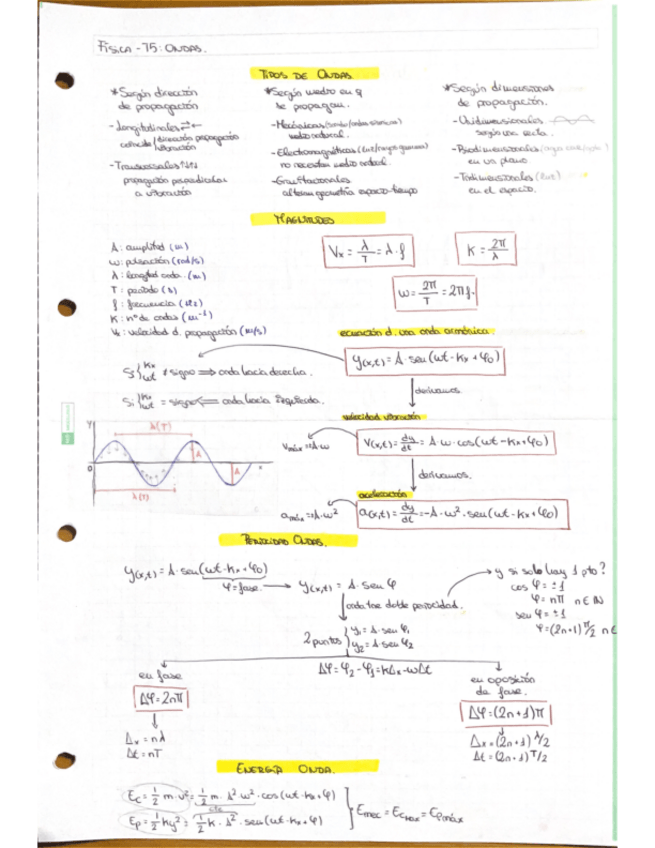 FÍSICA - T5: ONDAS.
TIPOS DE ONDAS
*Según dirección de propagación
- Longitudinales ⇄
coincide/dirección propagación
vibración
- Transversales ↑↓↑↓
propagación perpendicular
a vibración
*Según medio en q
se propagan.
- Mecánicas
medio material.
- Electromagnéticas
no necesitan medio material.
- Gravitacionales
alteran geometría espacio-tiempo
*Según dimensiones
de propagación.
- Unidimensionales
según una recta.
- Bidimensionales
en un plano
- Tridimensionales (luz)
en el espacio.
MAGNITUDES
A: amplitud (m)
ω: pulsación (rad/s)
λ: longitud onda. (m)
T: periodo (s)
f: frecuencia (Hz)
K: nº de ondas (m⁻¹)
Vx: velocidad d. propagación (m/s)
Vx = λ/T = λ·f
K = 2π/λ
ω = 2π/T = 2πf.
ecuación d. una onda armónica.
y(x,t) = A·sen(ωt - Kx + φ0)
Si } Kx ωt ≠ signo ⟹ onda hacia derecha.
Si } Kx ωt = signo ⟸ onda hacia izquierda.
derivamos
velocidad vibración
Vmáx => A·ω
V(x,t) = dy/dt = A·ω·cos(ωt - Kx + φ0)
derivamos.
aceleración
amáx => A·ω²
a(x,t) = dy/dt = -A·ω²·sen(ωt - Kx + φ0)
Y
λ(T)
A
A
0
x
λ(T)
PERIOCIDAD ONDAS.
y(x,t) = A·sen(ωt - Kx + φ0)
φ = fase.
y(x,t) = A·sen φ
onda tiene doble periocidad.
y si solo hay 1 pto?
cos φ = ±1
φ = nπ n ∈ ℕ
sen φ = ±1
φ = (2n+1) π/2 n ∈
2 puntos { y1 = A·sen φ1
y2 = A·sen φ2
Δφ = φ2 - φ1 = kΔx - ωΔt
en fase
Δφ = 2nπ
Δx = nλ
Δt = nT
en oposición
de fase.
Δφ = (2n+1)π
Δx = (2n+1) λ/2
Δt = (2n+1) T/2
ENERGÍA ONDA.
Ec = 1/2 m·v² = 1/2 m·A²ω²·cos(ωt - Kx + φ)
cte
Ep = 1/2 ky² = 1/2 k·A²·sen(ωt - Kx + φ)
Emec = Ecmax = Epmáx